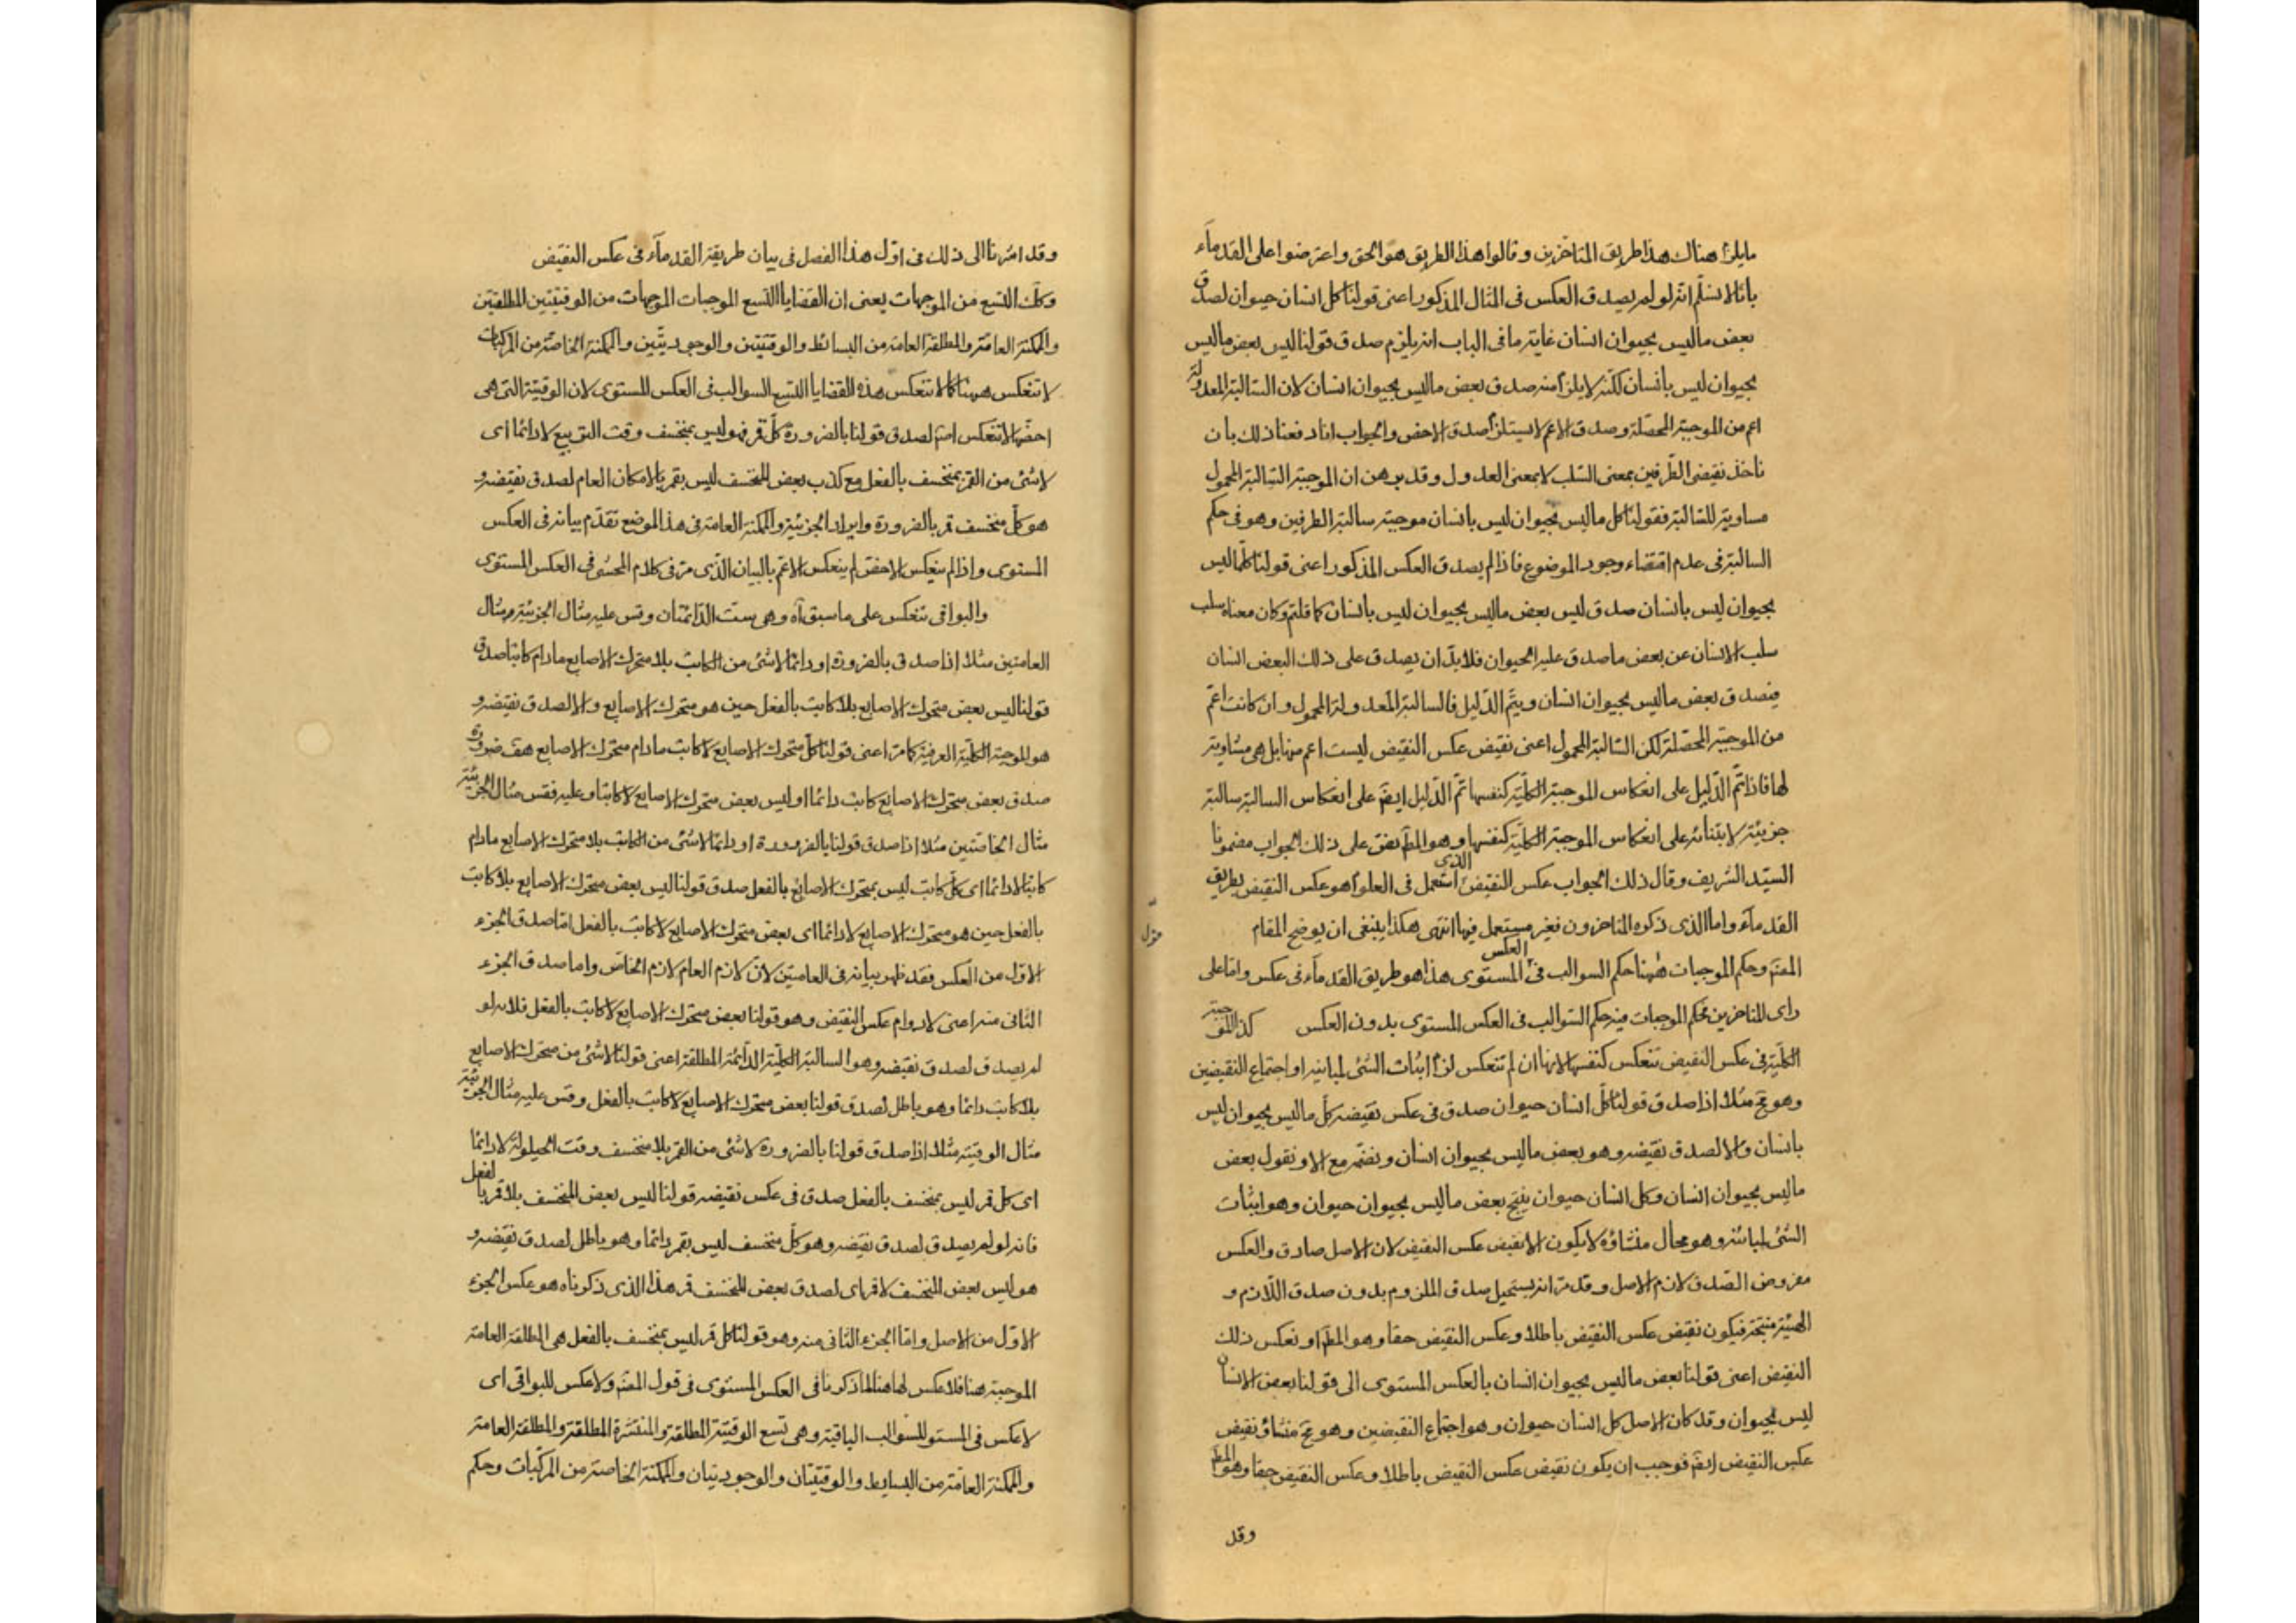 مايلزم هناك هذا طريق المتاخرين وقالوا هذا الطريق هو الحق واعترضوا على القدماء
بانا لانسلم انه لو لم يصدق العكس فى المثال المذكور اعنى قولنا كل انسان حيوان لصدق
بعض ماليس بحيوان انسان غاية ما فى الباب انه يلزم صدق قولنا ليس بعض ماليس
بحيوان ليس بانسان لكنه لا يلزم منه صدق بعض ماليس بحيوان انسان لان السالبة المعدولة
اعم من الموجبة المحصلة وصدق الاعم لا يستلزم صدق الاخص والجواب انا دفعنا ذلك بان
ناخذ نقيضى الطرفين بمعنى السلب لا بمعنى العدول وقد برهن ان الموجبة السالبة المحمول
مساوية للسالبة فقولنا كل ماليس بحيوان ليس بانسان موجبة سالبة الطرفين وهو فى حكم
السالبة فى عدم اقتضاء وجود الموضوع فاذا لم يصدق العكس المذكور اعنى قولنا كلما ليس
بحيوان ليس بانسان صدق ليس بعض ماليس بحيوان ليس بانسان كما قلتم وكان معناه سلب
سلب الانسان عن بعض ماصدق عليه الحيوان فلا بد ان يصدق على ذلك البعض انسان
فيصدق بعض ماليس بحيوان انسان ويتم الدليل فالسالبة المعدولة المحمول وان كانت اعم
من الموجبة المحصلة لكن السالبة المحمول اعنى نقيض عكس النقيض ليست اعم منها بل هى مساوية
لها فاذا تم الدليل على انعكاس الموجبة الكلية كنفسها تم الدليل ايضا على انعكاس السالبة سالبة
جزئية لابتنائه على انعكاس الموجبة الكلية كنفسها وهو المط نص على ذلك الجواب مضمونا
السيد الشريف وقال ذلك الجواب عكس النقيض الذى استعمل فى العلوم هو عكس النقيض بطريق
القدماء واما الذى ذكره المتاخرون فغير مستعمل فيها انتهى هكذا ينبغى ان يوضح المقام
المص وحكم الموجبات ههنا حكم السوالب فى العكس المستوى هذا هو طريق القدماء فى عكس واما على
راى المتاخرين فحكم الموجبات فيه حكم السوالب فى العكس المستوى بدون العكس كذا الموجبة
الكلية فى عكس النقيض تنعكس كنفسها لانها ان لم تنعكس لزم اثبات الشئ لمباينه او اجتماع النقيضين
وهو مح مثلا اذا صدق قولنا كل انسان حيوان صدق فى عكس نقيضه كل ماليس بحيوان ليس
بانسان والا لصدق نقيضه وهو بعض ماليس بحيوان انسان ونضمه مع الا ونقول بعض
ماليس بحيوان انسان وكل انسان حيوان ينتج بعض ماليس بحيوان حيوان وهو اثبات
الشئ لمباينه وهو محال منشاؤه لا يكون الا نقيض عكس النقيض لان الاصل صادق والعكس
مفروض الصدق لازم الاصل وقد مر انه يستحيل صدق الملزوم بدون صدق اللازم و
الهيئة منتجة فيكون نقيض عكس النقيض باطلا وعكس النقيض حقا وهو المط او نعكس ذلك
النقيض اعنى قولنا بعض ماليس بحيوان انسان بالعكس المستوى الى قولنا بعض الانسان
ليس بحيوان وقد كان الاصل كل انسان حيوان وهو اجتماع النقيضين وهو مح منشاؤه نقيض
عكس النقيض ايضا فوجب ان يكون نقيض عكس النقيض باطلا وعكس النقيض حقا وهو المط
وقد
وقد اشرنا الى ذلك فى اول هذا الفصل فى بيان طريقة القدماء فى عكس النقيض
وكك التسع من الموجهات يعنى ان القضايا التسع الموجبات الموجهات من الوقتيتين المطلقتين
والممكنة العامة والمطلقة العامة من البسائط والوقتيتين والوجوديتين والممكنة الخاصة من المركبات
لا تنعكس ههنا كما لا تنعكس هذه القضايا التسع السوالب فى العكس المستوى لان الوقتية التى هى
اخصها لا تنعكس لصدق قولنا بالضرورة كل قمر فهو ليس بمنخسف وقت التربيع لا دائما اى
لا شئ من القمر بمنخسف بالفعل مع كذب بعض المنخسف ليس بقمر بالامكان العام لصدق نقيضه و
هو كل منخسف قمر بالضرورة وايراد الجزئية والممكنة العامة فى هذا الموضع تقدم بيانه فى العكس
المستوى واذا لم ينعكس الاخص لم ينعكس الاعم بالبيان الذى مر فى كلام المحشى فى العكس المستوى
والبواقى تنعكس على ماسبق آه وهى ست الدائمتان وقس عليه مثال الجزئية ومثال
العامتين مثلا اذا صدق بالضرورة او دائما لا شئ من الكاتب بلا متحرك الاصابع مادام كاتبا صدق
قولنا ليس بعض متحرك الاصابع بلا كاتب بالفعل حين هو متحرك الاصابع والا لصدق نقيضه و
هو الموجبة الكلية العرفية كما مر اعنى قولنا كل متحرك الاصابع لا كاتب مادام متحرك الاصابع هف ضرورة
صدق بعض متحرك الاصابع كاتب دائما او ليس بعض متحرك الاصابع لا كاتبا وعليه فقس مثال الجزئية
مثال الخاصتين مثلا اذا صدق قولنا بالضرورة او دائما لا شئ من الكاتب بلا متحرك الاصابع مادام
كاتبا لا دائما اى كل كاتب ليس بمتحرك الاصابع بالفعل صدق قولنا ليس بعض متحرك الاصابع بلا كاتب
بالفعل حين هو متحرك الاصابع لا دائما اى بعض متحرك الاصابع لا كاتب بالفعل اما صدق الجزء
الاول من العكس فقد ظهر بيانه فى العامتين لان لازم العام لازم الخاص واما صدق الجزء
الثانى منه اعنى لا دوام عكس النقيض وهو قولنا بعض متحرك الاصابع لا كاتب بالفعل فلانه لو
لم يصدق لصدق نقيضه وهو السالبة الكلية الدائمة المطلقة اعنى قولنا لا شئ من متحرك الاصابع
بلا كاتب دائما وهو باطل لصدق قولنا بعض متحرك الاصابع لا كاتب بالفعل وقس عليه مثال الجزئية
مثال الوقتية مثلا اذا صدق قولنا بالضرورة لا شئ من القمر بلا منخسف وقت الحيلولة لا دائما
اى كل قمر ليس بمنخسف بالفعل صدق فى عكس نقيضه قولنا ليس بعض المنخسف بلا قمر بالفعل
فانه لو لم يصدق لصدق نقيضه وهو كل منخسف ليس بقمر دائما وهو باطل لصدق نقيضه و
هو ليس بعض المنخسف لا قمر اى لصدق بعض المنخسف قمر هذا الذى ذكرناه هو عكس الجزء
الاول من الاصل واما الجزء الثانى منه وهو قولنا كل قمر ليس بمنخسف بالفعل هى المطلقة العامة
الموجبة هنا فلا عكس لها هنا لما ذكرنا فى العكس المستوى فى قول المص ولا عكس للبواقى اى
لا عكس فى المستو للسوالب الباقية وهى تسع الوقتية المطلقة والمنتشرة المطلقة والمطلقة العامة
والممكنة العامة من البسايط والوقتيتان والوجوديتان والممكنة الخاصة من المركبات وحكم